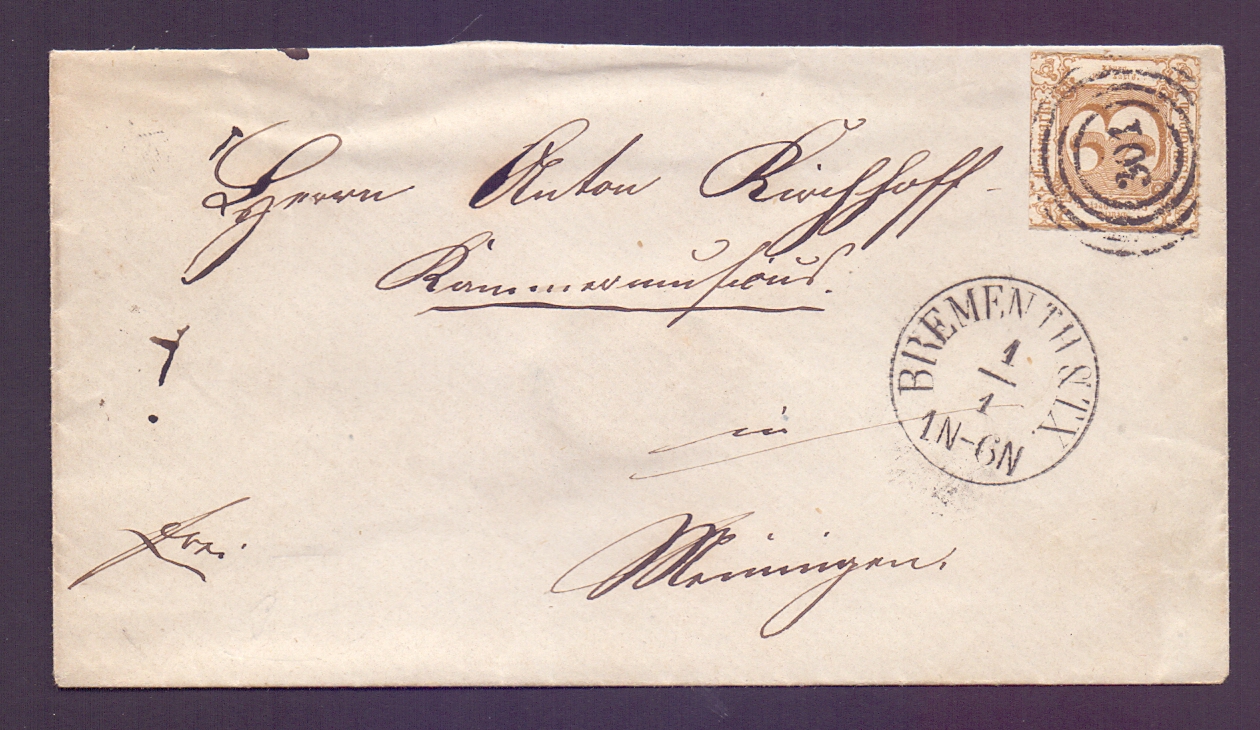 Herrn Anton Kirchhoff
Kammermusikus.
in
Meiningen.
frei.
301
BREMEN TH & TX.
1/1
1N-6N